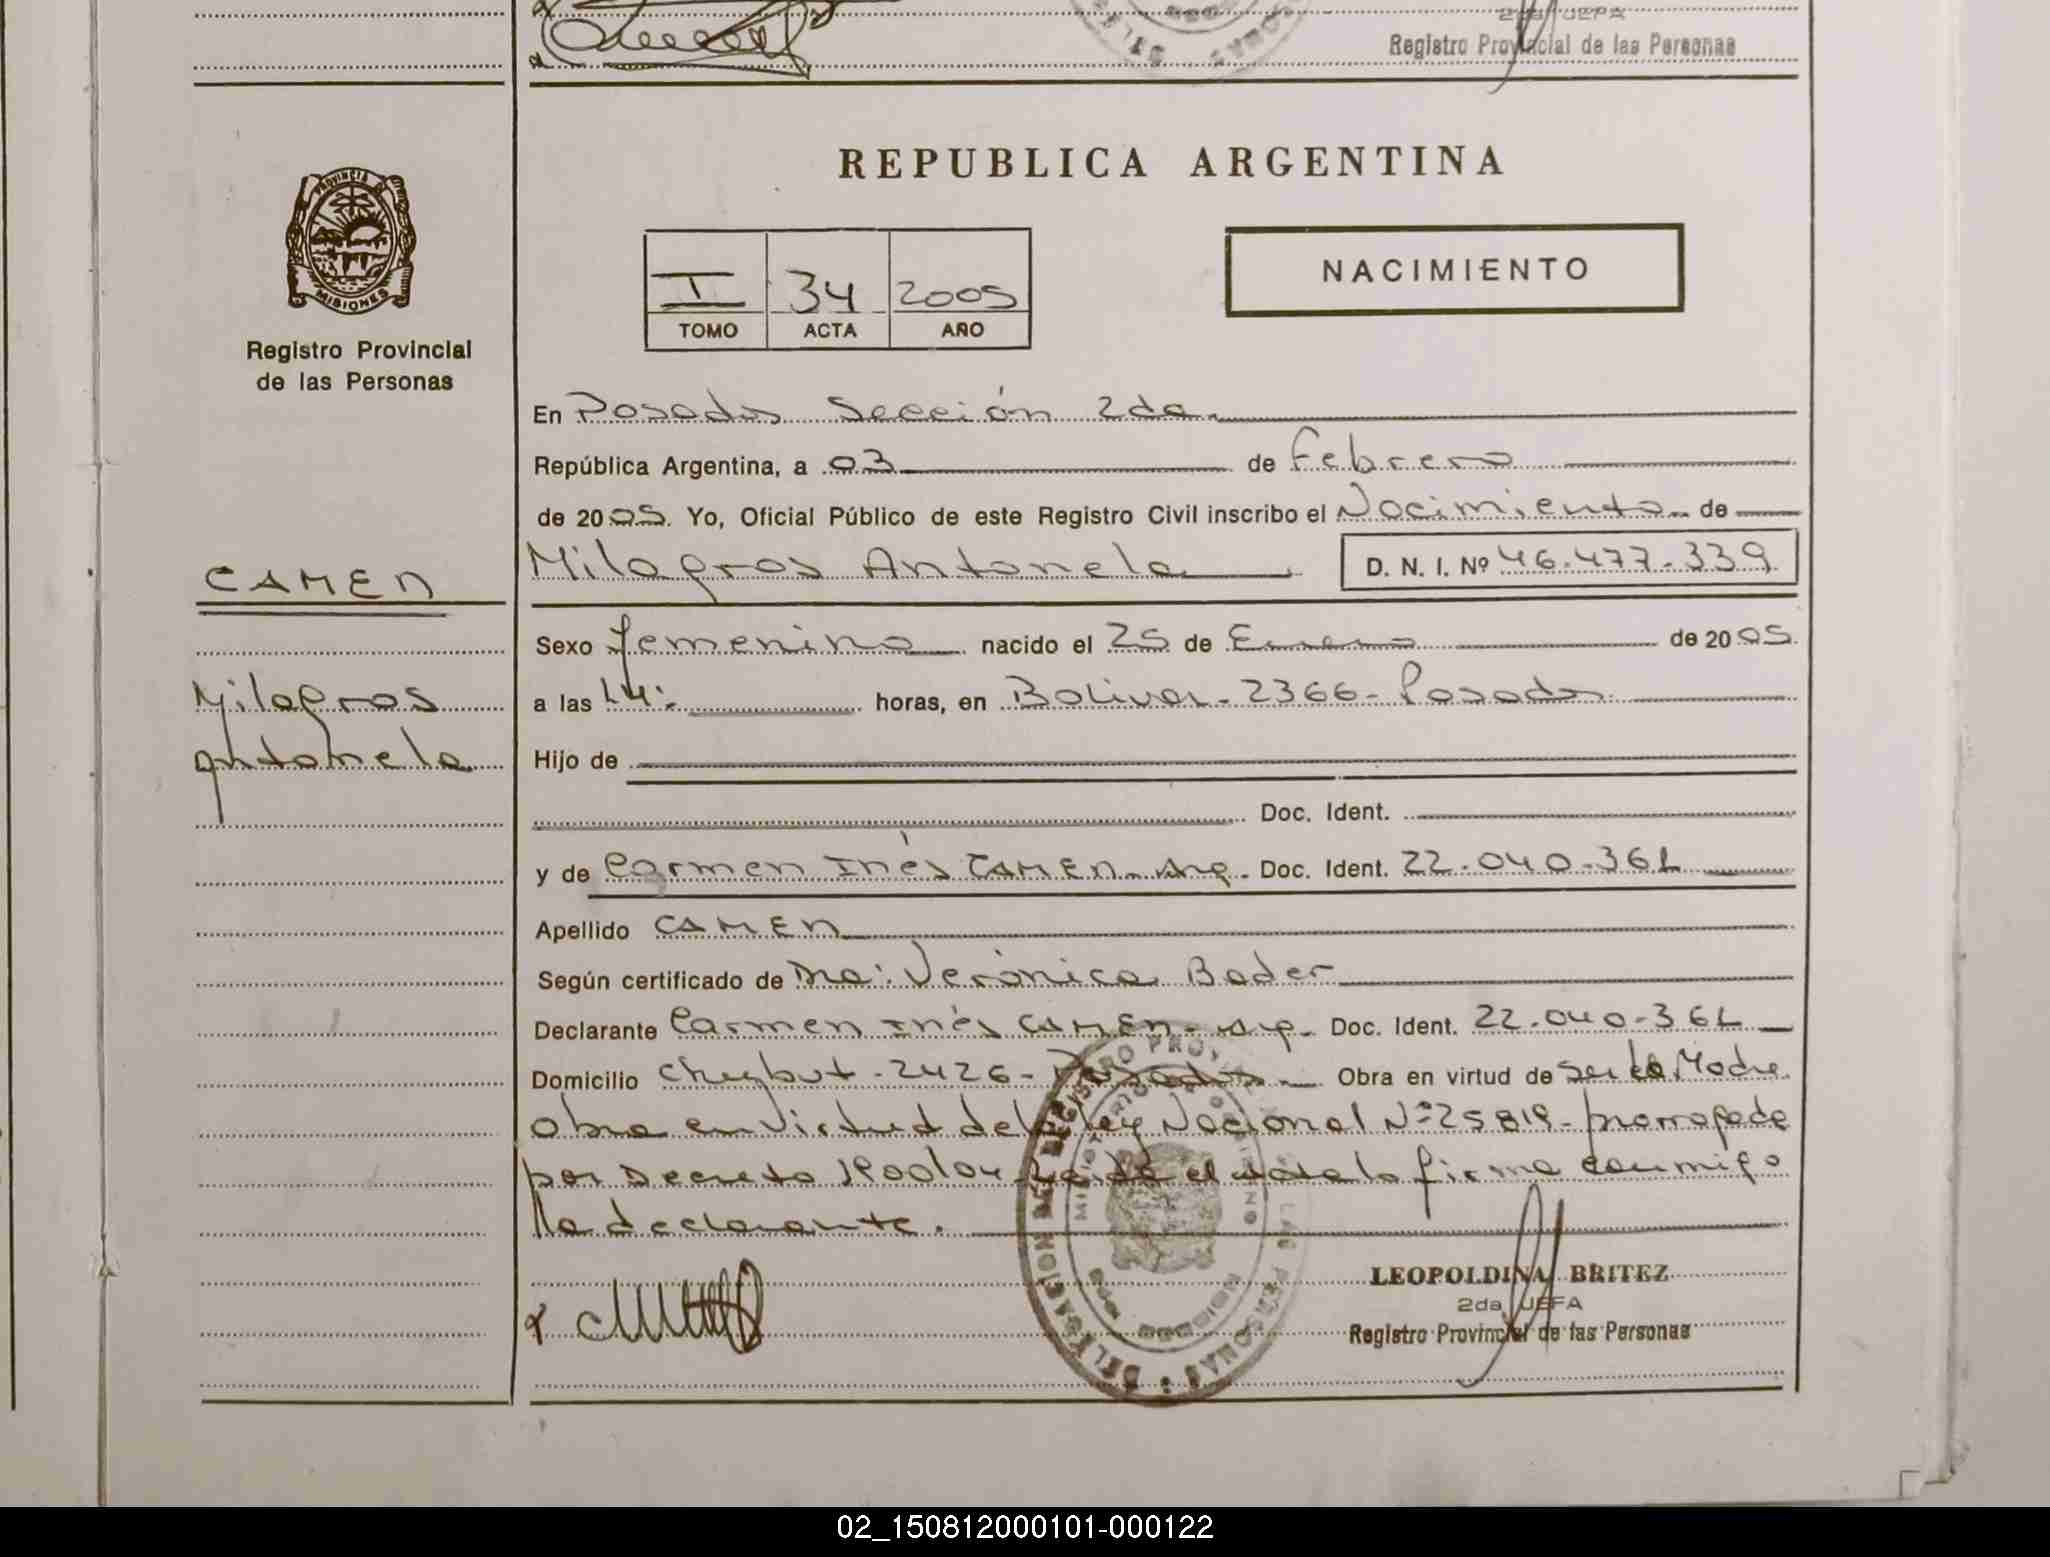 2da JEFA
Registro Provincial de las Personas
REPUBLICA ARGENTINA
PROVINCIA DE
MISIONES
Registro Provincial
de las Personas
I 34 2005
TOMO ACTA AÑO
NACIMIENTO
En Posadas Sección 2da.
República Argentina, a 03 de Febrero
de 2005. Yo, Oficial Público de este Registro Civil inscribo el Nacimiento de
CAMEN
Milagros Antonela D. N. I. Nº 46.477.339
Sexo femenino nacido el 25 de Enero de 2005.
Milagros
a las 14: horas, en Bolivar - 2366 - Posadas
Antonela
Hijo de
Doc. Ident.
y de Carmen Inés CAMEN - Arg. Doc. Ident. 22.040.361
Apellido CAMEN
Según certificado de Ma: Verónica Bader
Declarante Carmen Inés CAMEN - Arg. Doc. Ident. 22.040.361
Domicilio Chubut - 2426 - Posadas Obra en virtud de ser la Madre
Obra en virtud de la Ley Nacional Nº 25819 - prorrogada
por Decreto 1900/04 - Leída el acta la firma conmigo
la declarante.
LEOPOLDINA BRITEZ
2da JEFA
Registro Provincial de las Personas
02_150812000101-000122